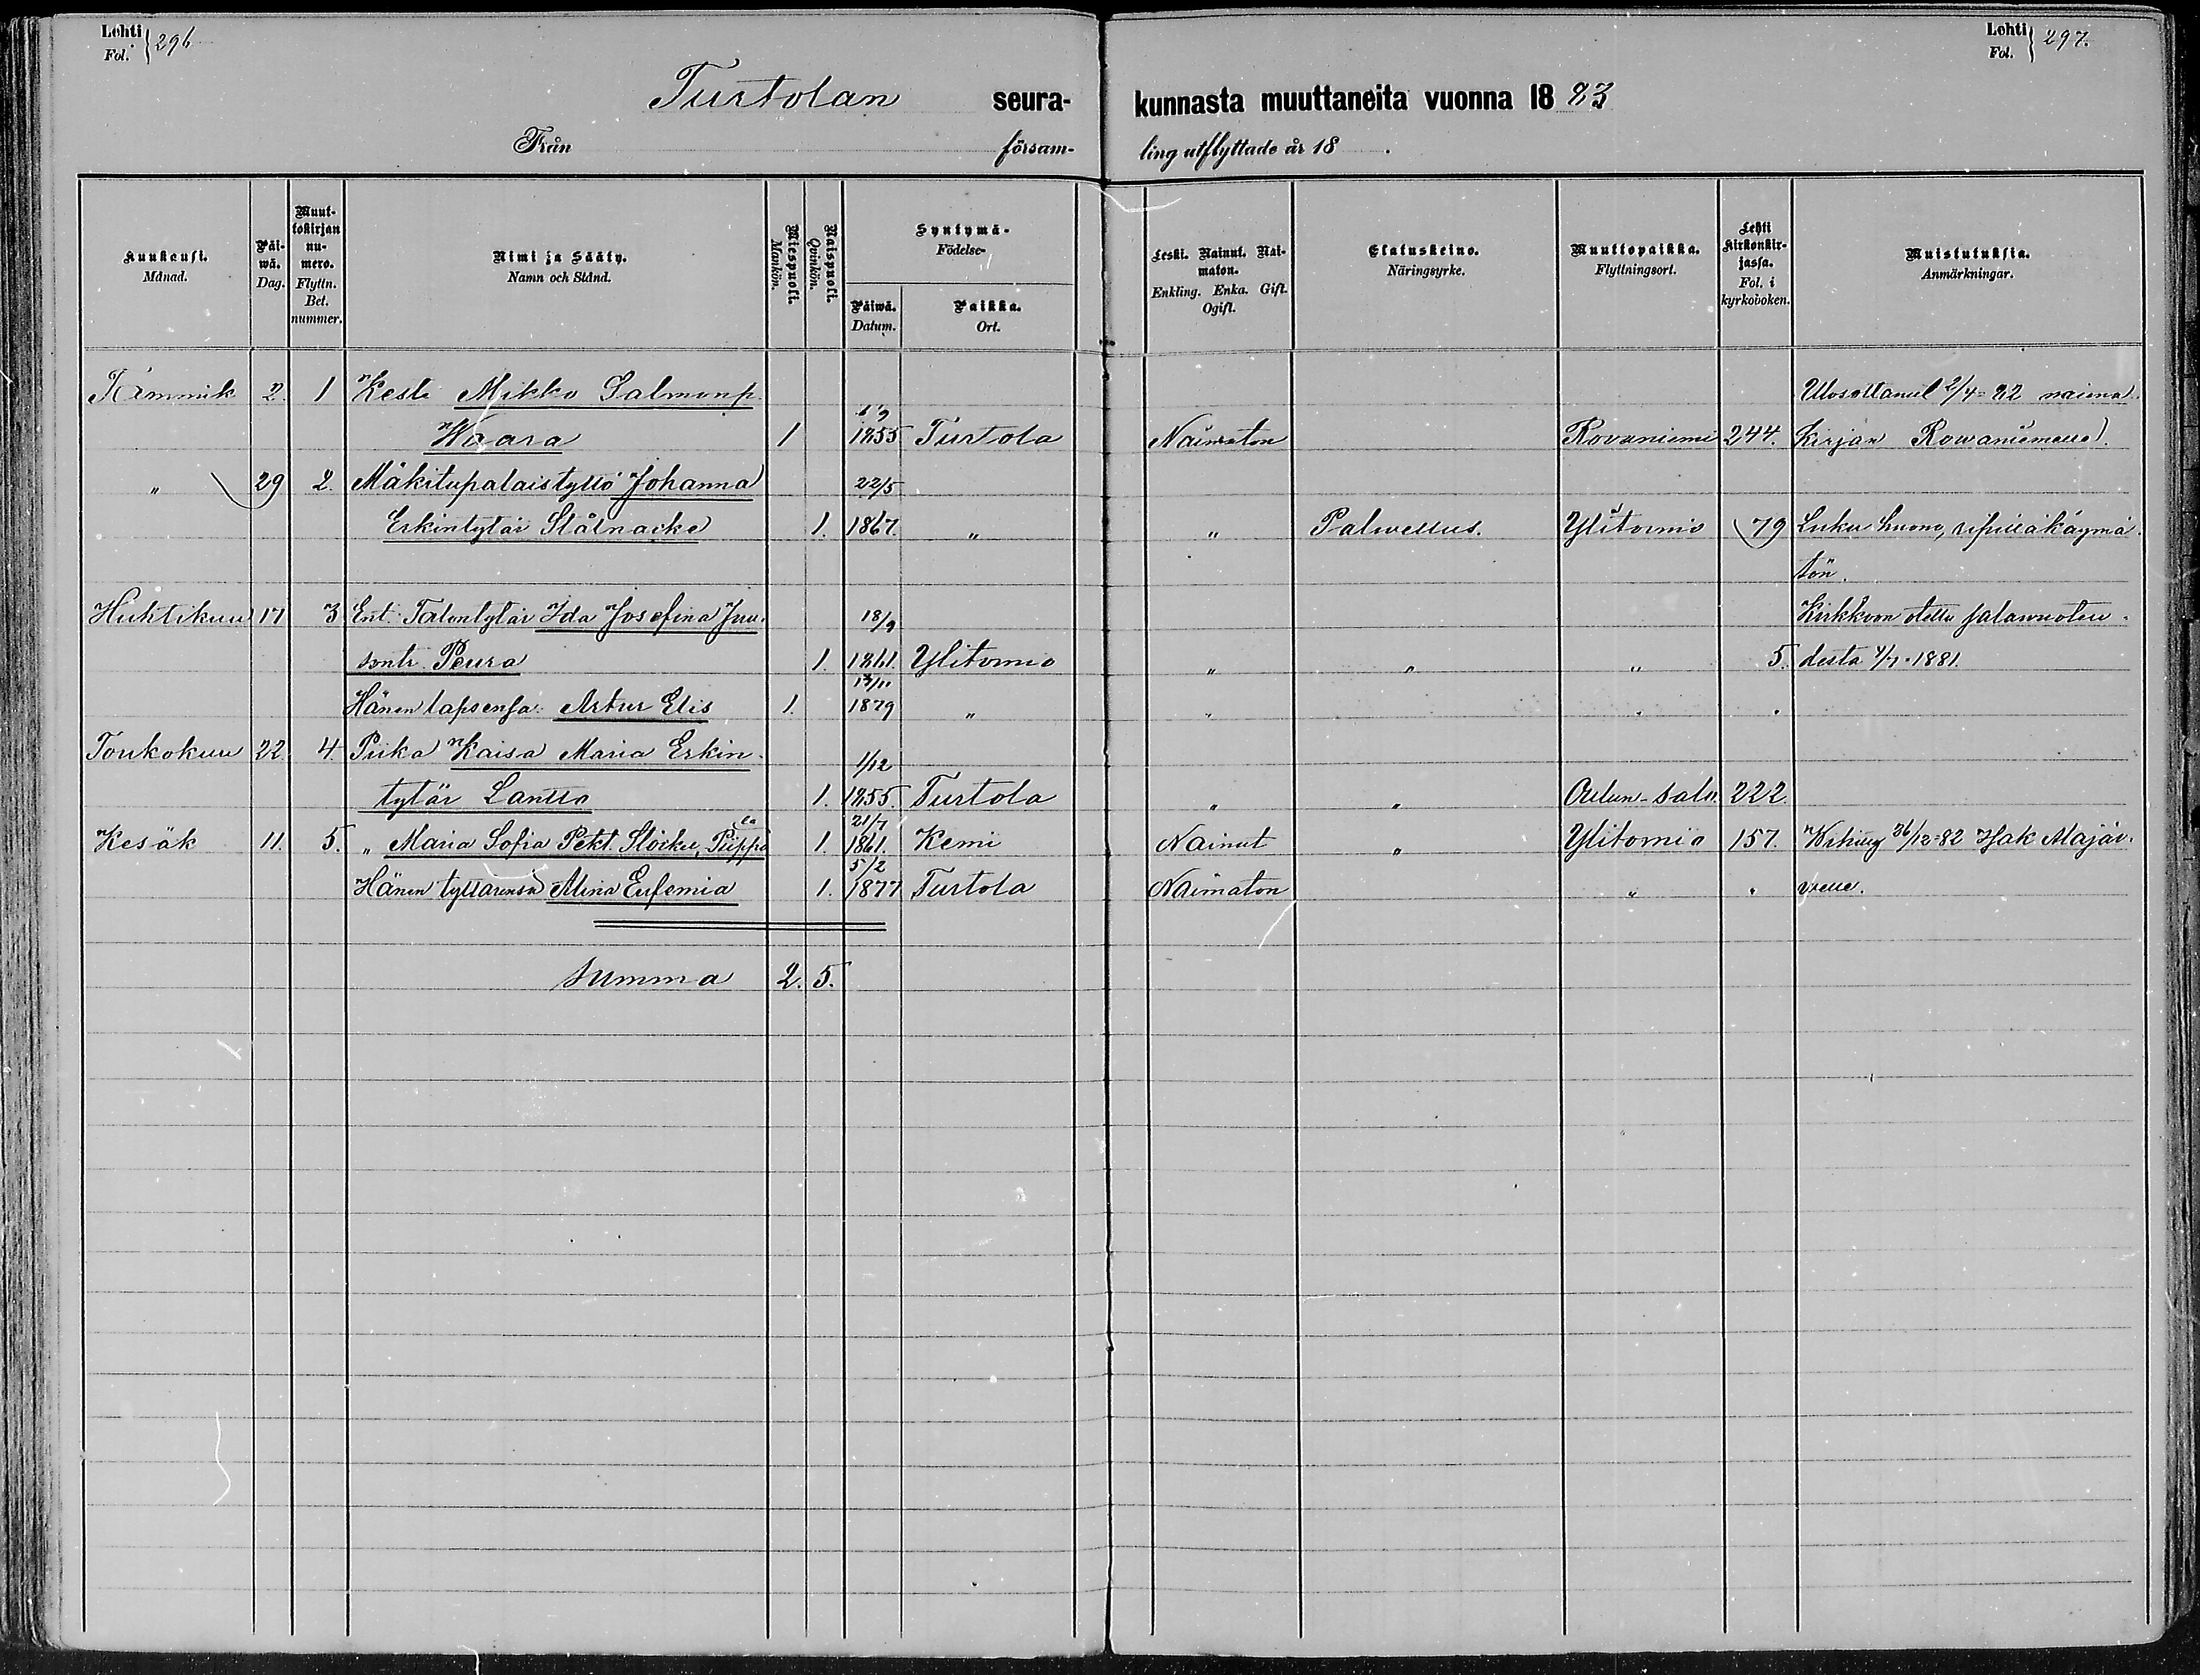 Lehti
Fol. } 296
Lehti
Fol. } 297.
Turtolan seura- kunnasta muuttaneita vuonna 18 83
Från försam- ling utflyttade år 18 .
Kuukausi. Månad.
Päi-wä. Dag.
Muut-tokirjan nu-mero. Flyttn. Bet. nummer.
Nimi ja Sääty. Namn och Stånd.
Miespuoli. Mankön.
Naispuoli. Qvinkön.
Syntymä- Födelse-
Päiwä. Datum.
Paikka. Ort.
Leski. Nainut. Nai-maton. Enkling. Enka. Gift. Ogift.
Elatuskeino. Näringsyrke.
Muuttopaikka. Flyttningsort.
Lehti Kirkonkir-jassa. Fol. i kyrkoboken.
Muistutuksia. Anmärkningar.
Tammik 2. 1 Kesti Mikko Salmonp. 2/4-82
Waara 1 1855 Turtola Naimaton Rovaniemi 244. Kirjan Rowaniemelle).
" 29 2. Mäkitupalaistyttö Johanna 22/5
Erkintytär Stålnacke 1. 1867. " " Palwellus. Ylitornio 79 Luku huono, ripilläkäymä-
tön.
Huhtikuu 17 3 Ent. Talontytär Ida Josefina Juu- 18/9 Kirkkoon otettu salawuoteu-
sontr. Peura 1. 1861. Ylitornio " " " 5. desta 1881.
Hänen lapsensa: Artur Elis 1. 1879 " " " "
Toukokuu 22. 4. Piika Kaisa Maria Erkin- 1/12
tytär Lantto 1. 1855. Turtola " " Oulun-salo 222
Kesäk 11. 5. " Maria Sofia Pekt. Stoiku, Piippo 1. 21/7 1861. Kemi Nainut " Ylitornio 157. Wihity 26/12-82 Isak Alajär-
Hänen tyttärensä Alina Eufemia 1. 5/2 1877 Turtola Naimaton " " velle.
Summa 2. 5.